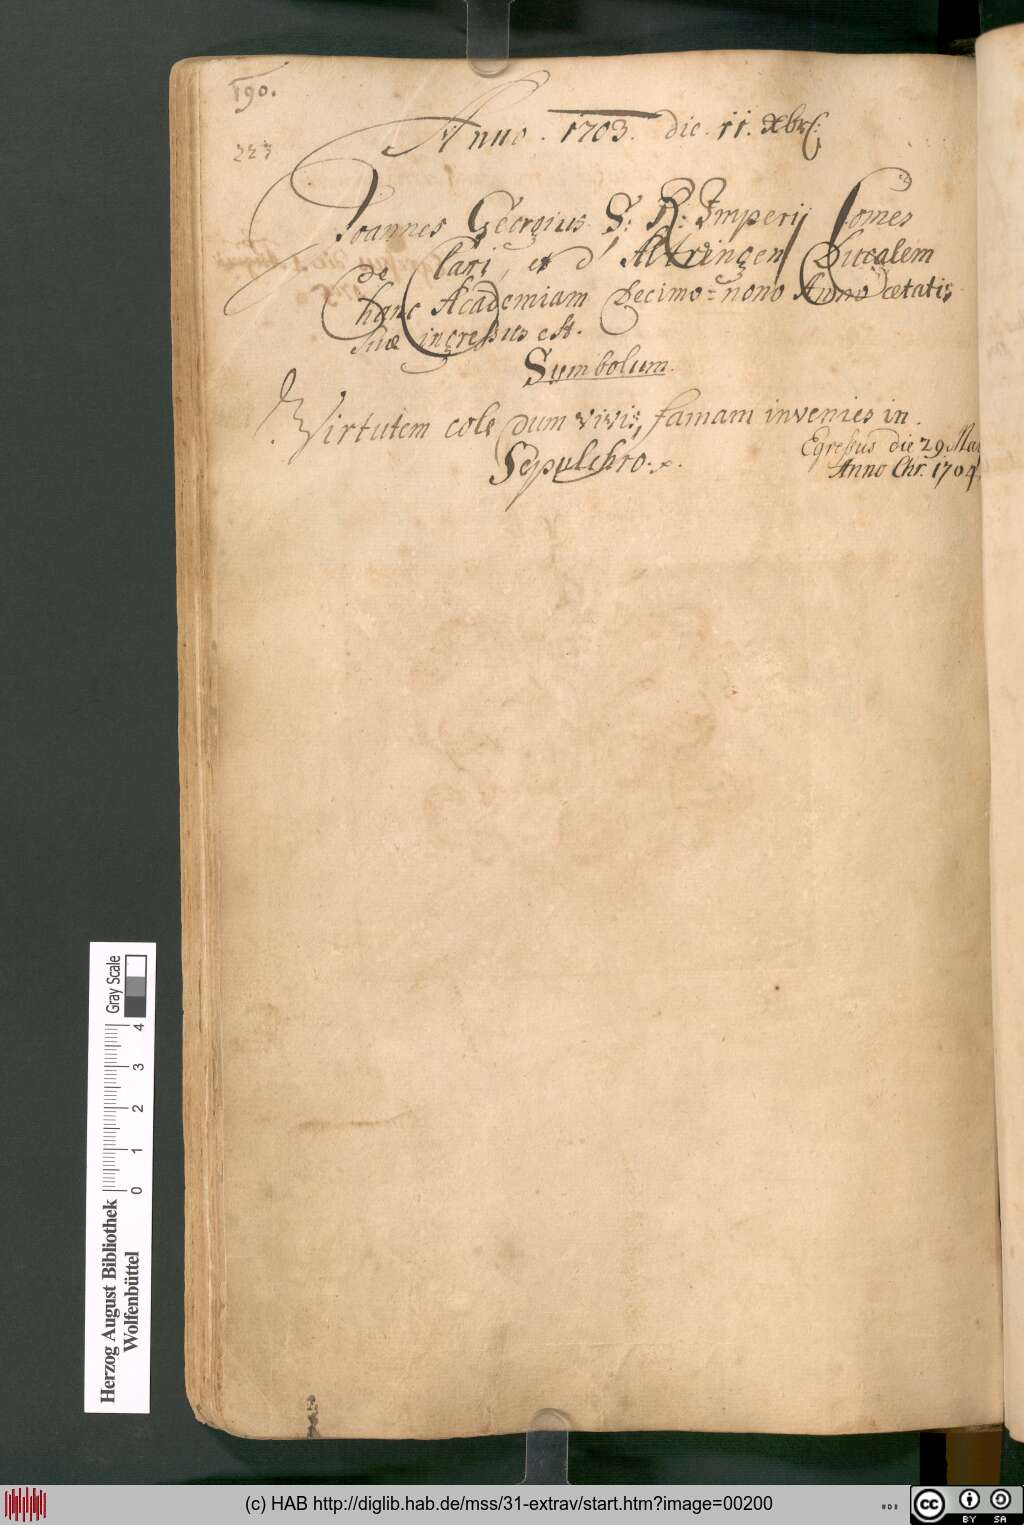 190.
223
Anno. 1703. die. 11. Xbr:
Joannes Georgius S: R: Imperij Comes
de Clari, et d' Altringen Ducalem
hanc Academiam Decimo=nono Anno ætatis
suæ ingressus est.
Symbolum.
Virtutem cole dum vivis, famam invenies in.
Sepulchro.
Egressus die 29 Ma
Anno Chr. 1704
Gray Scale
4
3
2
1
0
Herzog August Bibliothek
Wolfenbüttel
(c) HAB http://diglib.hab.de/mss/31-extrav/start.htm?image=00200
cc BY SA